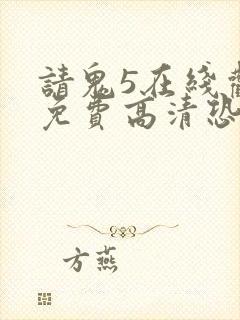 請鬼5在綫觀
免費高清恐
方燕